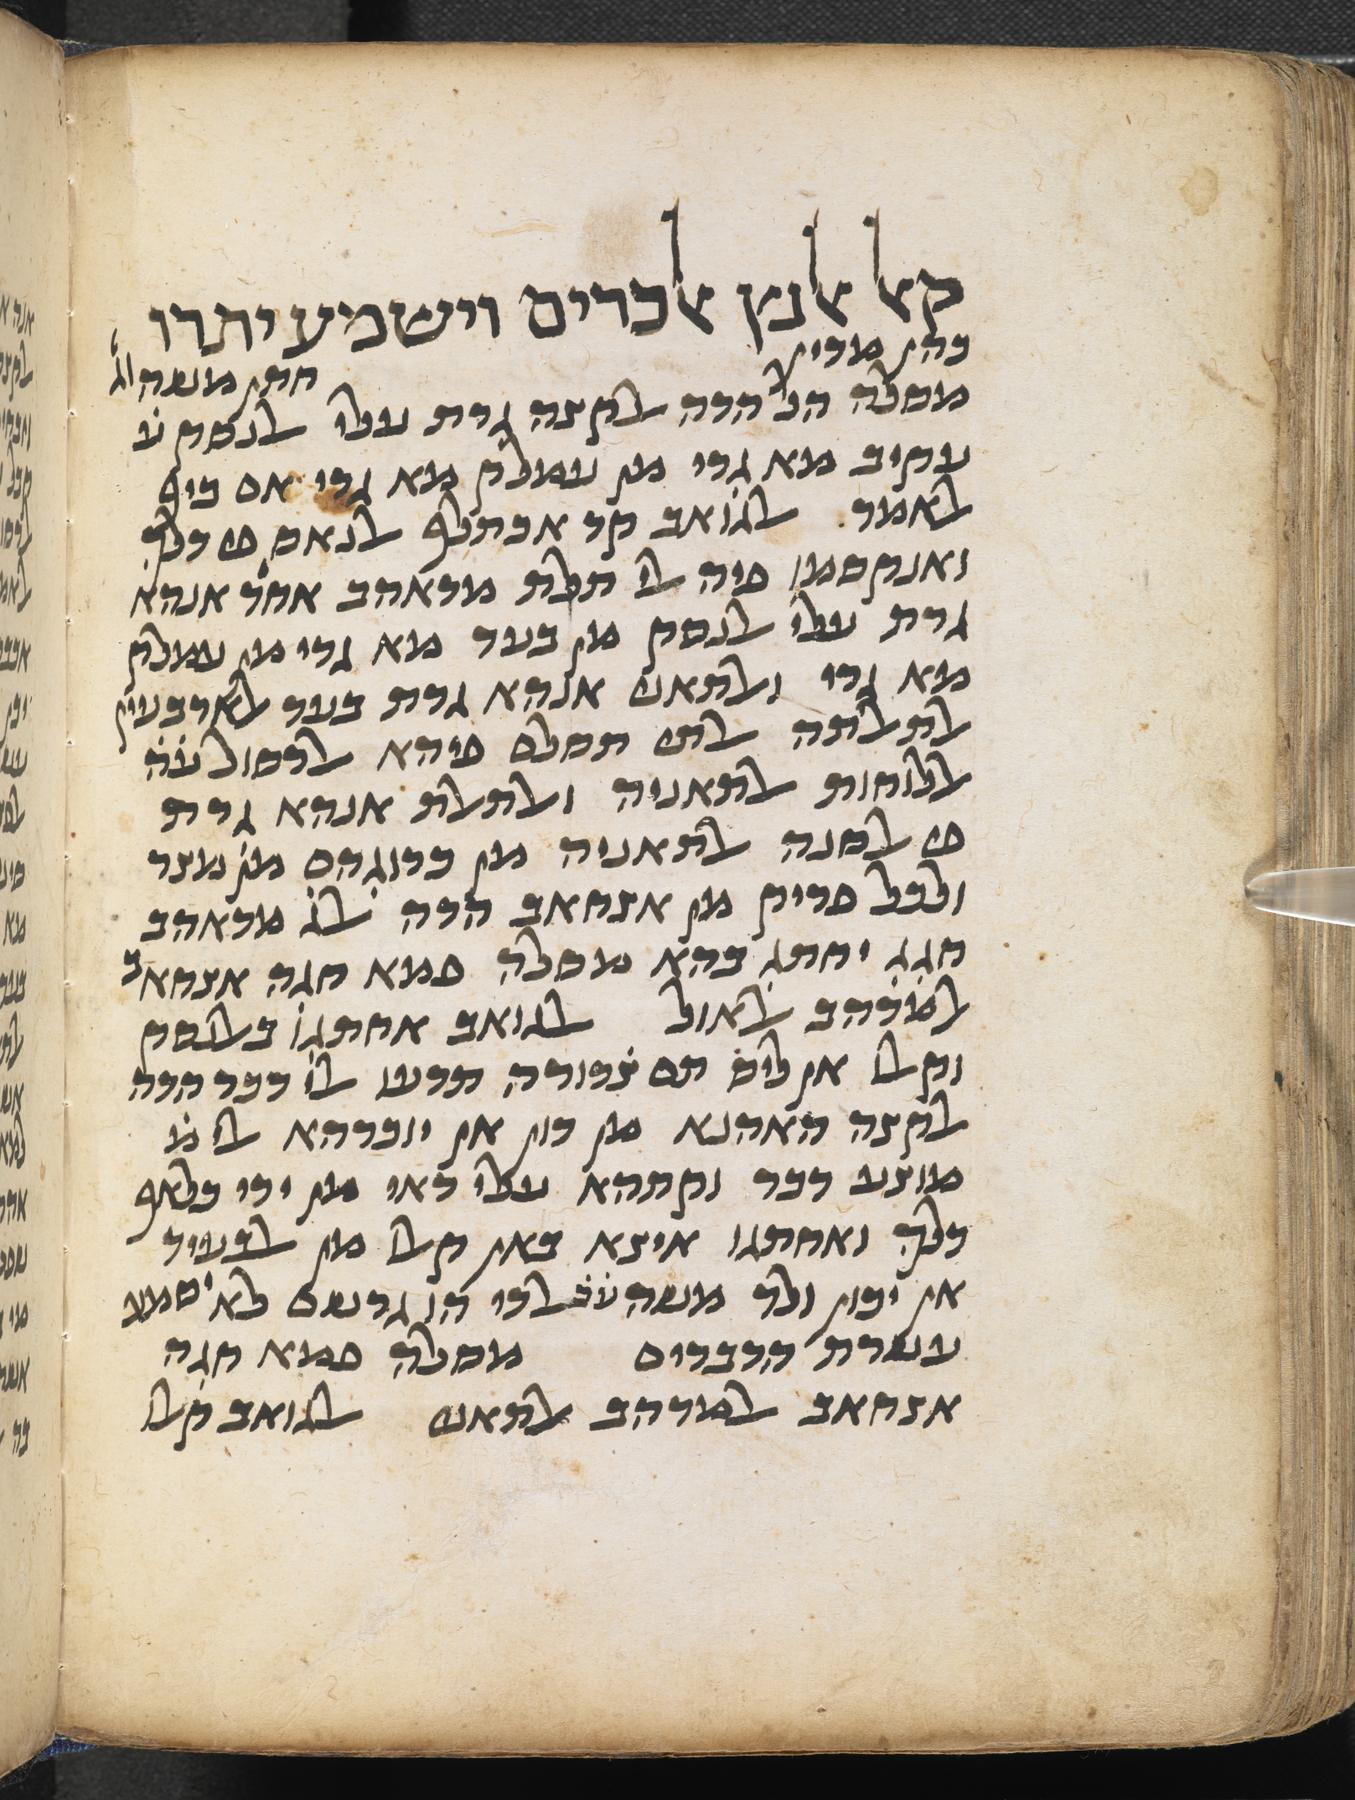 קאל אלנץ אלכרים וישמע יתרו
כהן מדין חתן משה וג'
מסלה הל הדה אלקצה גרת עלי אלנסק ע
עקיב מא גרי מן עמלק מא גרי אם כיף
אלאמר אלגואב קד אכתלף אלנאס פי דלך
ואנקסמו פיה אלי תלת מדאהב אחד אנהא
גרת עלי אלנסק מן בעד מא גרי מן עמלק
מא גרי ואלתאני אנהא גרת בעד אלארבעין
אלתאלתה אלתי תסלם פיהא אלרסול ע'ה'
אללוחות אלתאניה ואלתלת אנהא גרת
פי אלסנה אלתאניה מן כרוגהם מן מצר
ולכל פריק מן אצחאב הדה אלג מדאהב
חגג יחתג בהא מסלה פמא חגה אצחאב
אלמדהב אלאול אלגואב אחתגו באלנסק
וקאלו אן ליס תם צרורה תדעו אלי דכר הדה
אלקצה האהנא מן דון אן יוכרהא אלי מ
מוצע דכר וקתהא עלי ראי מן ירי כלאף
דלך ואחתגו איצא באן קאלו מן אלבעיד
אן יכון ולד משה ע'ה' אלדי הו גרשם לא יסמע
עשרת הדברים מסלה פמא חגה
אצחאב אלמדהב אלתאני אלגואב קאלו